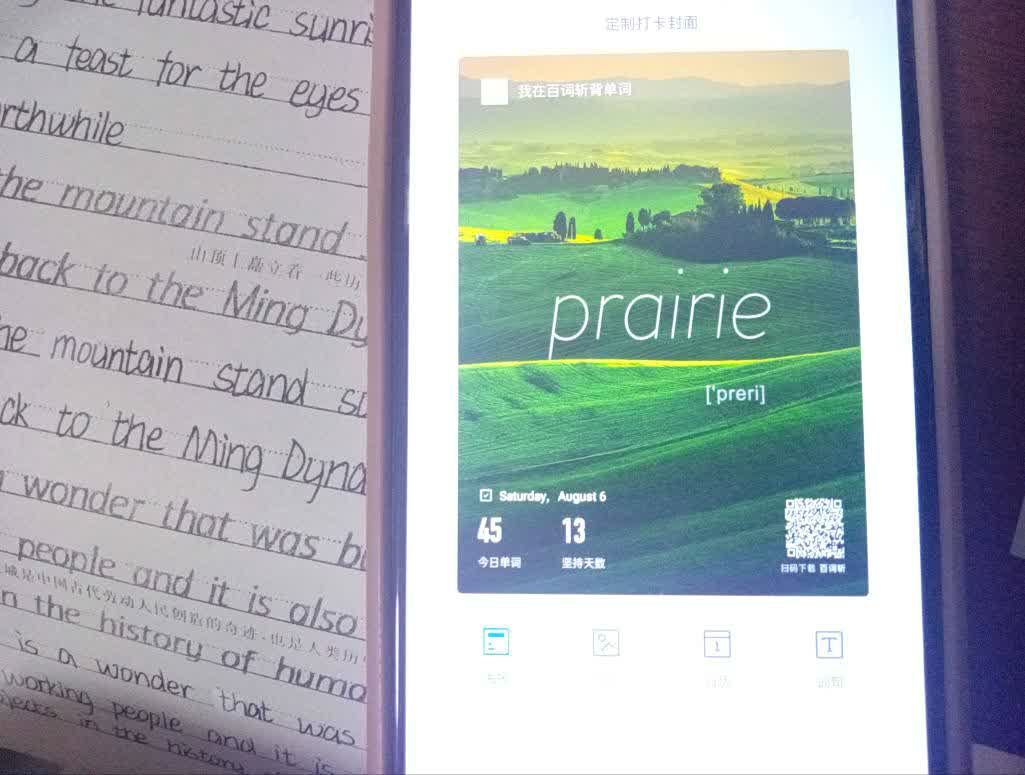 fantastic sunri
a feast for the eyes
rthwhile
he mountain stand
山顶上矗立着一此历
back to the Ming Dy
he mountain stand
ck to the Ming Dyna
wonder that was b
people and it is also
城是中国古代劳动人民创造的奇迹,也是人类历
n the history of huma
is a wonder that was
working people and it is
jects in the history
定制打卡封面
我在百词斩背单词
prairie
['preri]
Saturday, August 6
45
13
今日单词
坚持天数
扫码下载 百词斩
1
日历
T